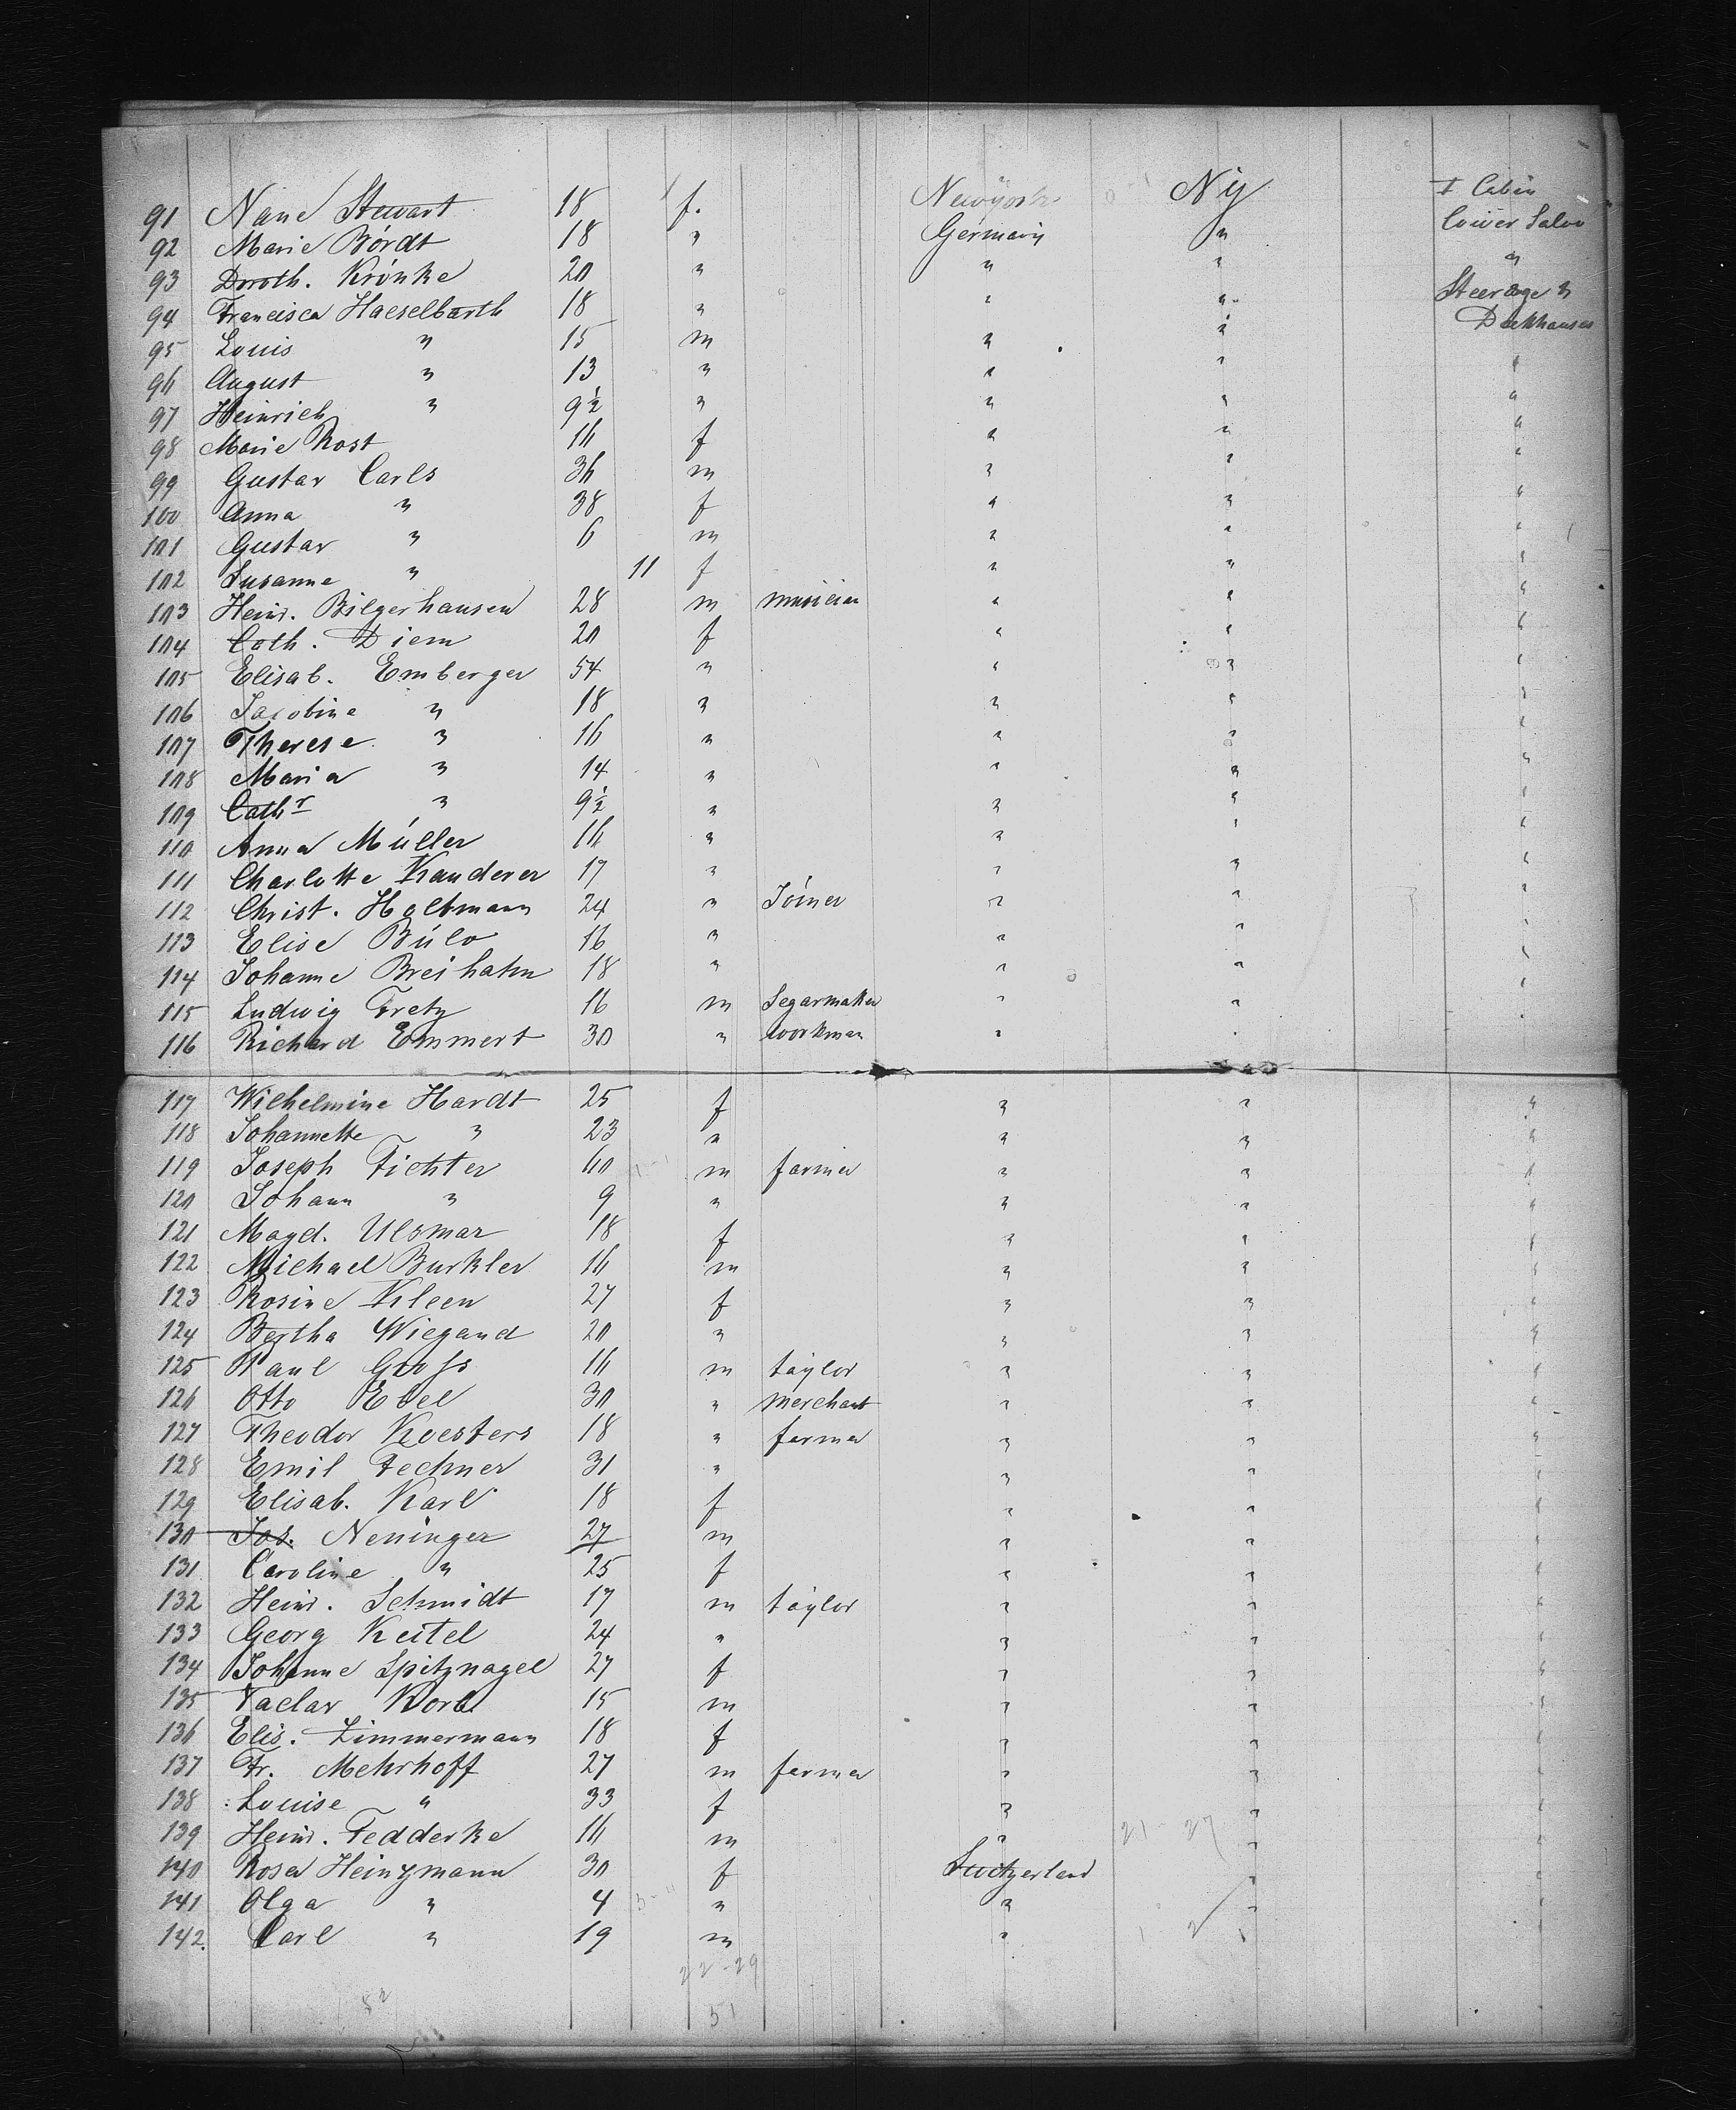 91 Nane Stewart 18 f. Newyork Ny I Cabin
92 Marie Bördt 18 " Germany " lower Saloo
93 Doroth. Krönke 20 " " " "
94 Francisca Haeselbarth 18 " " " Steerage &
95 Louis " 15 m " " Deckhouses
96 August " 13 " " " "
97 Heinrich " 9½ " " " "
98 Marie Rost 16 f " " "
99 Gustav Carls 36 m " " "
100 Anna " 38 f " " "
101 Gustav " 6 m " " "
102 Susanne " 11 f " " "
103 Heinr. Bilgerhausen 28 m musician " " "
104 Cath. Diem 20 f " " "
105 Elisab. Emberger 54 " " " "
106 Jacobine " 18 " " " "
107 Therese " 16 " " " "
108 Maria " 14 " " " "
109 Cathr " 9½ " " " "
110 Anna Müller 16 " " " "
111 Charlotte Kanderer 17 " " " "
112 Christ. Holtmann 24 " Joiner " " "
113 Elise Bülo 16 " " " "
114 Johanne Breihahn 18 " " " "
115 Ludwig Fretz 16 m Segarmaker " " "
116 Richard Emmert 30 " workman " " "
117 Wilhelmine Hardt 25 f " " "
118 Johannette " 23 " " " "
119 Joseph Fichter 60 m farmer " " "
120 Johann " 9 " " " "
121 Magd. Ulsmar 18 f " " "
122 Michael Burkler 16 m " " "
123 Rosine Kleen 27 f " " "
124 Bertha Wiegand 20 " " " "
125 Paul Gross 16 m taylor " " "
126 Otto Ebel 30 " merchant " " "
127 Theodor Koesters 18 " farmer " " "
128 Emil Fechner 31 " " " "
129 Elisab. Karl 18 f " " "
130 Jos. Neninger 27 m " " "
131 Caroline " 25 f " " "
132 Heinr. Schmidt 17 m taylor " " "
133 Georg Keitel 24 " " " "
134 Johanne Spitznagel 27 f " " "
135 Vaclav Korb 15 m " " "
136 Elis. Zimmermann 18 f " " "
137 Fr. Mehrhoff 27 m farmer " " "
138 Louise " 33 f " " "
139 Heinr. Fedderke 16 m " " "
140 Rosa Heinzmann 30 f Switzerland " "
141 Olga " 4 " " " "
142. Carl " 19 m " "
22-29
52
51